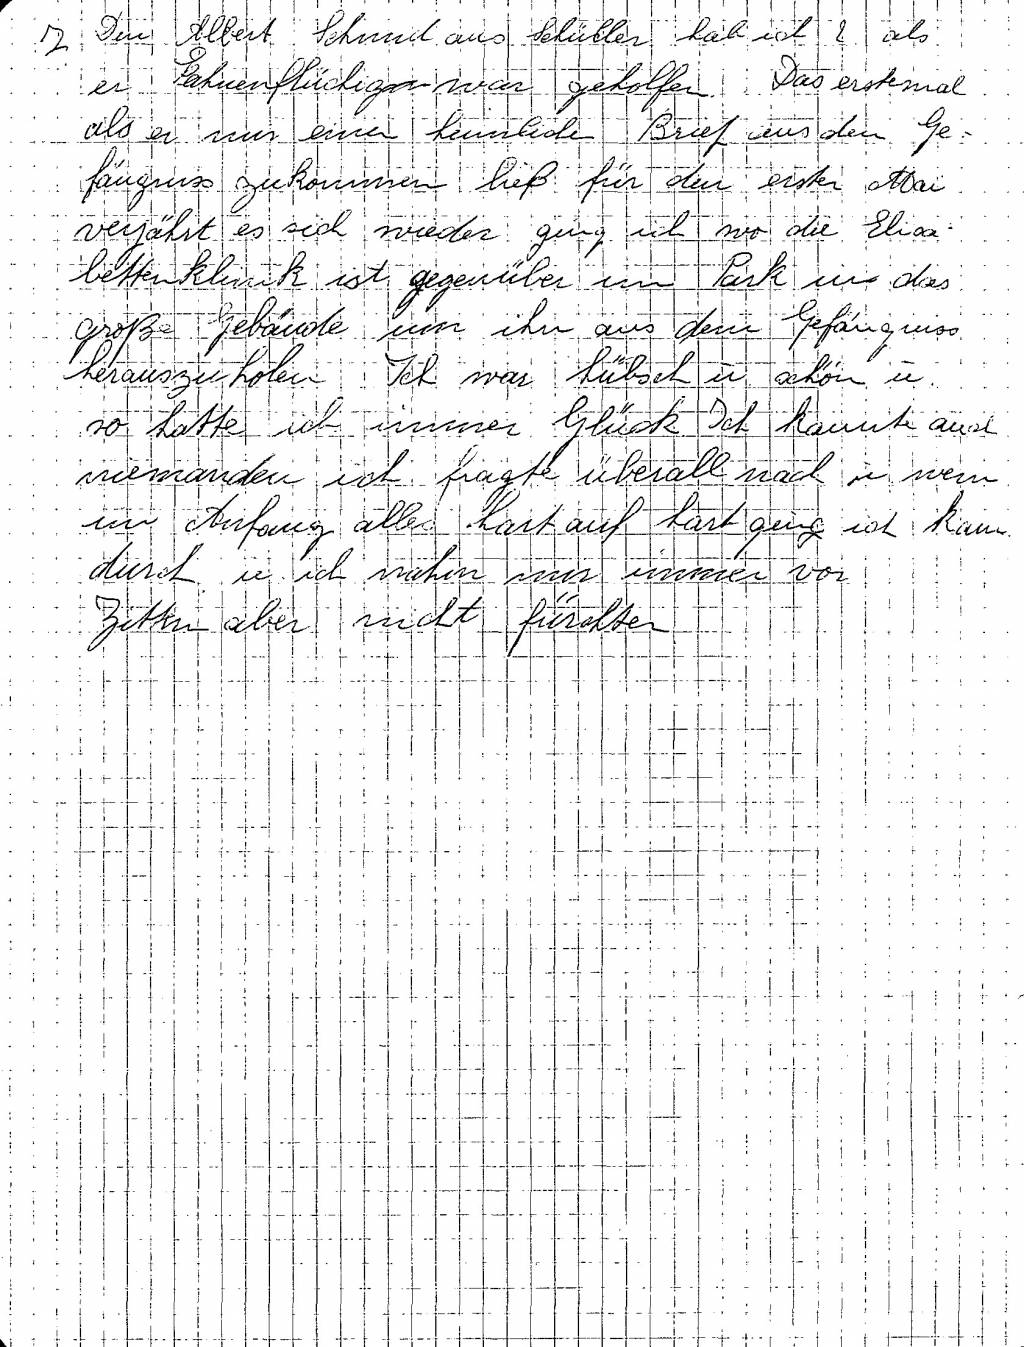 7 Den Albert Schmid aus Schüller hab ich 2 als
er Fahnenflüchig war geholfen. Das erstemal
als er mir einen heimliche Brief aus den Ge-
fängniss zukommen ließ für den erster Mai
verjährt es sich wieder ging ich wo die Elisa-
bettenklinik ist gegenüber im Park in das
große Gebäude um ihn aus dem Gefängniss
herauszuholen. Ich war hübsch u schön u
so hatte ich immer Glück Ich kannte auch
niemanden ich fragte überall nach u wenn
im Anfang alles hart auf hart ging ich kam
durch u ich nahm mir immer vor
Zittern aber nicht fürchten